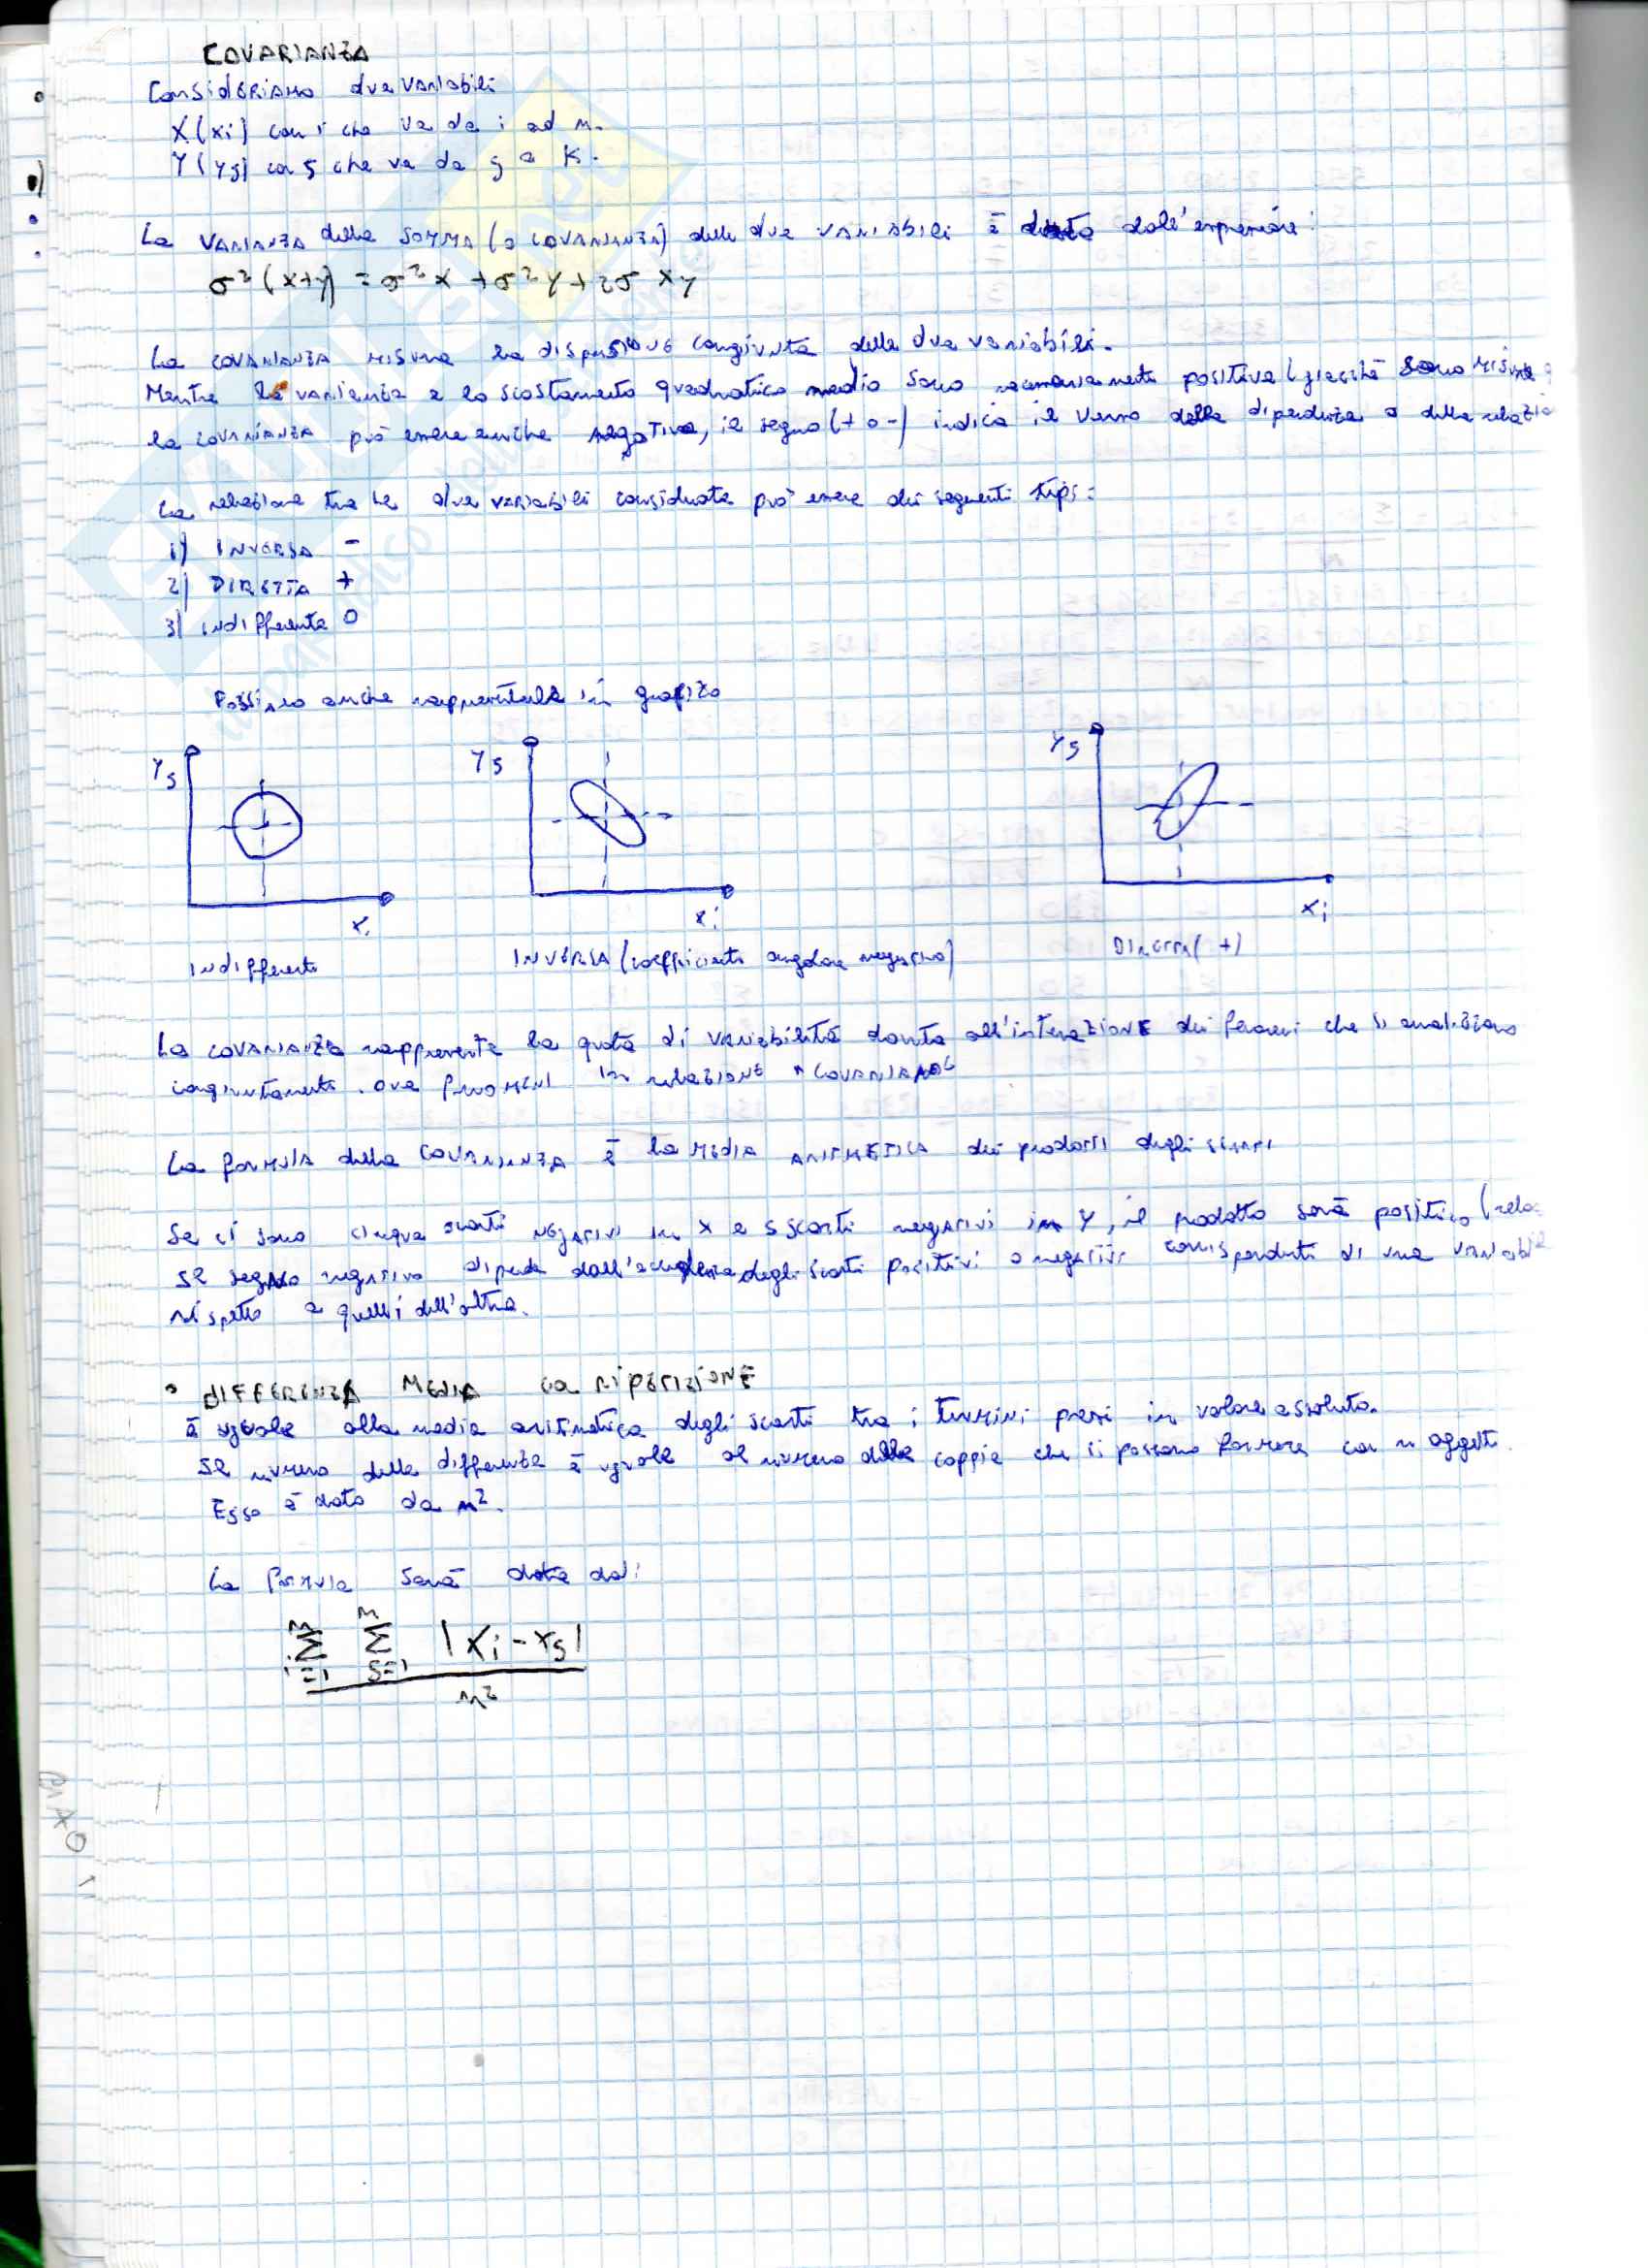 COVARIANZA
Consideriamo due variabili
X (xi) con i che va da i ad n.
Y (yj) con j che va da j a K.
La varianza della somma (o covarianza) delle due variabili è data dall'espressione:
σ² (x+y) = σ² x + σ² y + 2σ xy
La covarianza misura la dispersione congiunta delle due variabili.
Mentre la varianza e lo scostamento quadratico medio sono necessariamente positive (giacché sono misure
la covarianza può essere anche negativa, il segno (+ o -) indica il verso della dipendenza o della relazio
La relazione tra le due variabili considerate può essere dei seguenti tipi:
1) INVERSA -
2) DIRETTA +
3) indifferente 0
Possiamo anche rappresentarle in grafico
Yj Yj Yj
xi xi xi
Indifferente INVERSA (coefficiente angolare negativo) DIRETTA (+)
La covarianza rappresenta la quota di variabilità dovuta all'interazione dei fenomeni che si analizzano
congiuntamente. due fenomeni in relazione covariano
La formula della covarianza è la media aritmetica dei prodotti degli scarti
Se ci sono cinque scarti negativi in x e 5 scarti negativi in y, il prodotto sarà positivo (rela
Il segno negativo dipende dall'accoglienza degli scarti positivi o negativi corrispondenti di una variabile
rispetto a quelli dell'altra.
• DIFFERENZA MEDIA con RIPETIZIONE
è uguale alla media aritmetica degli scarti tra i termini presi in valore assoluto.
Il numero delle differenze è uguale al numero delle coppie che si possono formare con n oggetti.
Esso è dato da n².
La formula sarà data da:
n n
Σ Σ |xi - xj|
i=1 j=1
n²